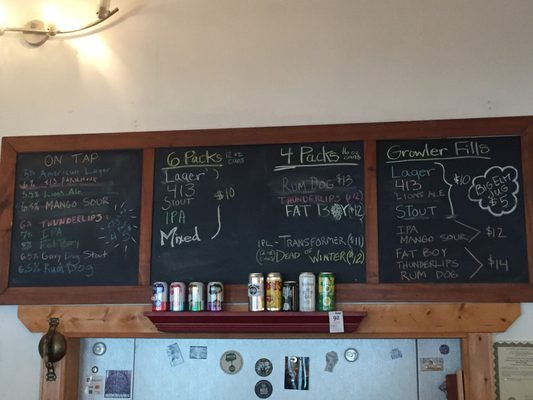 ON TAP
5% American Lager
6% 413 FARMHOUSE
5.5% LIONS ALE
6.5% MANGO SOUR
6% THUNDERLIPS
7% IPA
8% Fat Boy
6.5% Gary Dog Stout
6.5% Rum Dog
6 Packs 12 oz cans
Lager
413
STOUT
IPA
Mixed
$10
4 Packs 16 oz cans
RUM DOG $13
THUNDERLIPS $12
FAT BOY $12
IPL - TRANSFORMER ($11)
DEAD OF
WINTER ($12)
Growler Fills
Lager
413
LIONS ALE
STOUT
$10
IPA
MANGO SOUR
$12
FAT BOY
THUNDERLIPS
RUM DOG
$14
BIGELM
JUG
$5
92